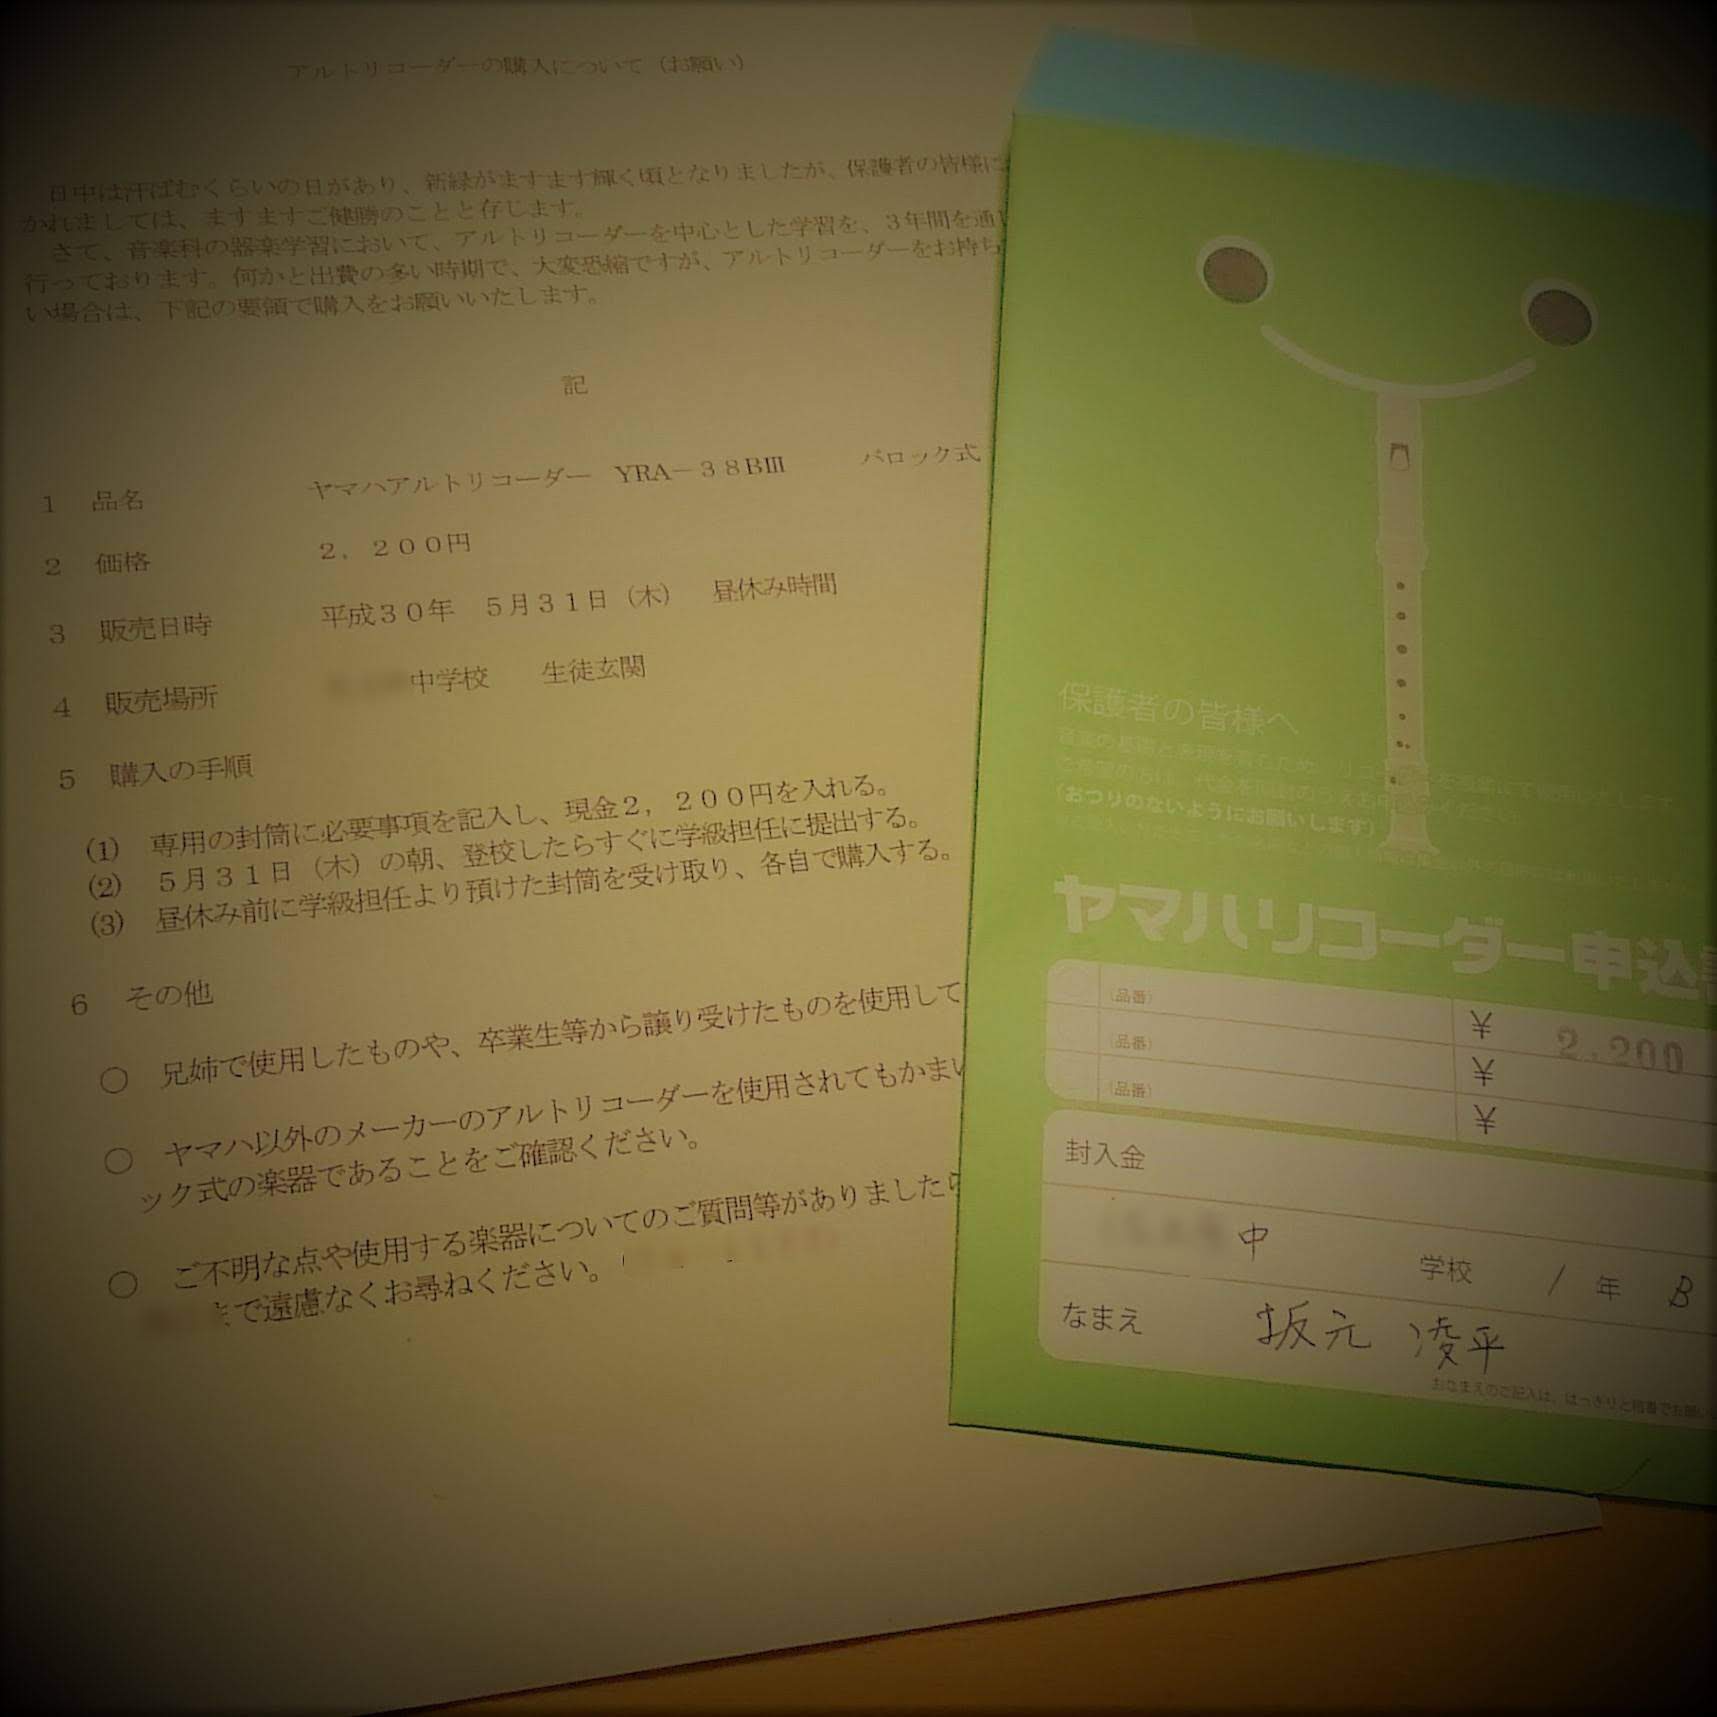 アルトリコーダーの購入について（お願い）
日中は汗ばむくらいの日があり、新緑がますます輝く頃となりましたが、保護者の皆様に
かれましては、ますますご健勝のことと存じます。
さて、音楽科の器楽学習において、アルトリコーダーを中心とした学習を、３年間を通し
行っております。何かと出費の多い時期で、大変恐縮ですが、アルトリコーダーをお持ち
い場合は、下記の要領で購入をお願いいたします。
記
１ 品名 ヤマハアルトリコーダー YRA－３８BⅢ バロック式
２ 価格 ２，２００円
３ 販売日時 平成３０年 ５月３１日（木） 昼休み時間
４ 販売場所 中学校 生徒玄関
５ 購入の手順
(1) 専用の封筒に必要事項を記入し、現金２，２００円を入れる。
(2) ５月３１日（木）の朝、登校したらすぐに学級担任に提出する。
(3) 昼休み前に学級担任より預けた封筒を受け取り、各自で購入する。
６ その他
○ 兄姉で使用したものや、卒業生等から譲り受けたものを使用して
○ ヤマハ以外のメーカーのアルトリコーダーを使用されてもかまい
ック式の楽器であることをご確認ください。
○ ご不明な点や使用する楽器についてのご質問等がありましたら
まで遠慮なくお尋ねください。
保護者の皆様へ
(おつりのないようにお願いします)
ヤマハリコーダー申込
(品番) ¥ 2,200
(品番) ¥
(品番) ¥
封入金
中 学校 1 年 B
なまえ 坂元 凌平
おなまえのご記入は、はっきりと楷書でお願い